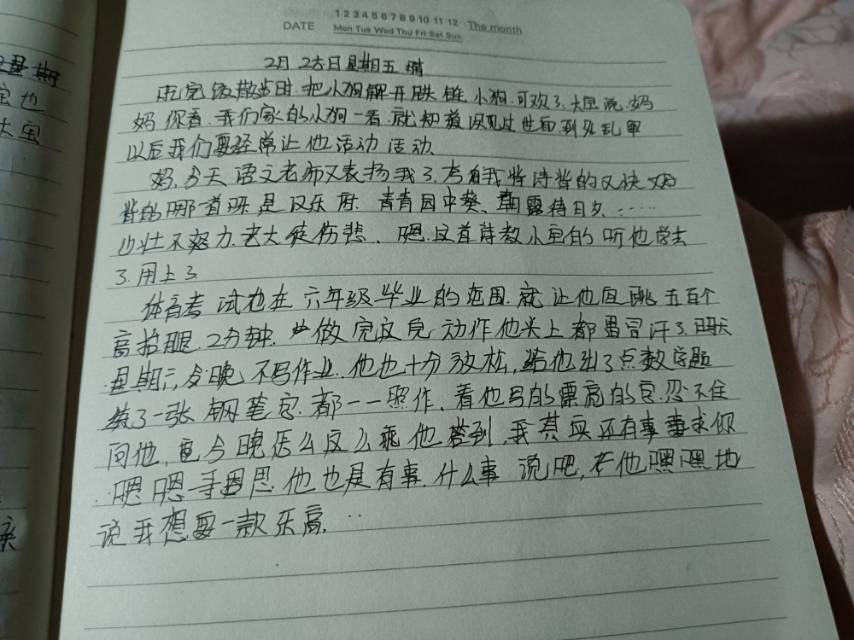 1 2 3 4 5 6 7 8 9 10 11 12 The month
DATE Mon Tue Wed Thu Fri Sat Sun
2月 25日星期五 晴
吃完饭散步时.把小狗解开铁链.小狗.可欢了.大宝说.妈
妈你看.我们家的小狗一看.就知道没见过世面到处乱窜
以后我们要经常让他活动活动.
妈.今天语文老师又表扬我了.夸我背诗背的又快又好
背的哪首呀是汉乐府 青青园中葵、朝露待日夕、……
少壮不努力.老大徒伤悲、嗯.这首诗教小宝的听他学去
了.用上了
体育考试也在六年级毕业的范围.就让他回跳五百个
高抬腿.2分钟.做完这几动作他头上都冒汗了.明天
星期六.今晚不写作业.他也十分放松.给他出了点数学题
练了一张钢笔字.都一一照作.看他写的票亮的字.忍不住
问他.宝今晚怎么这么乖他答到.我其实还有事要求你
嗯嗯 他也是有事.什么事 说吧.在他嘿嘿地
说我想要一款乐高.…
星期
宝也
大宝
亲